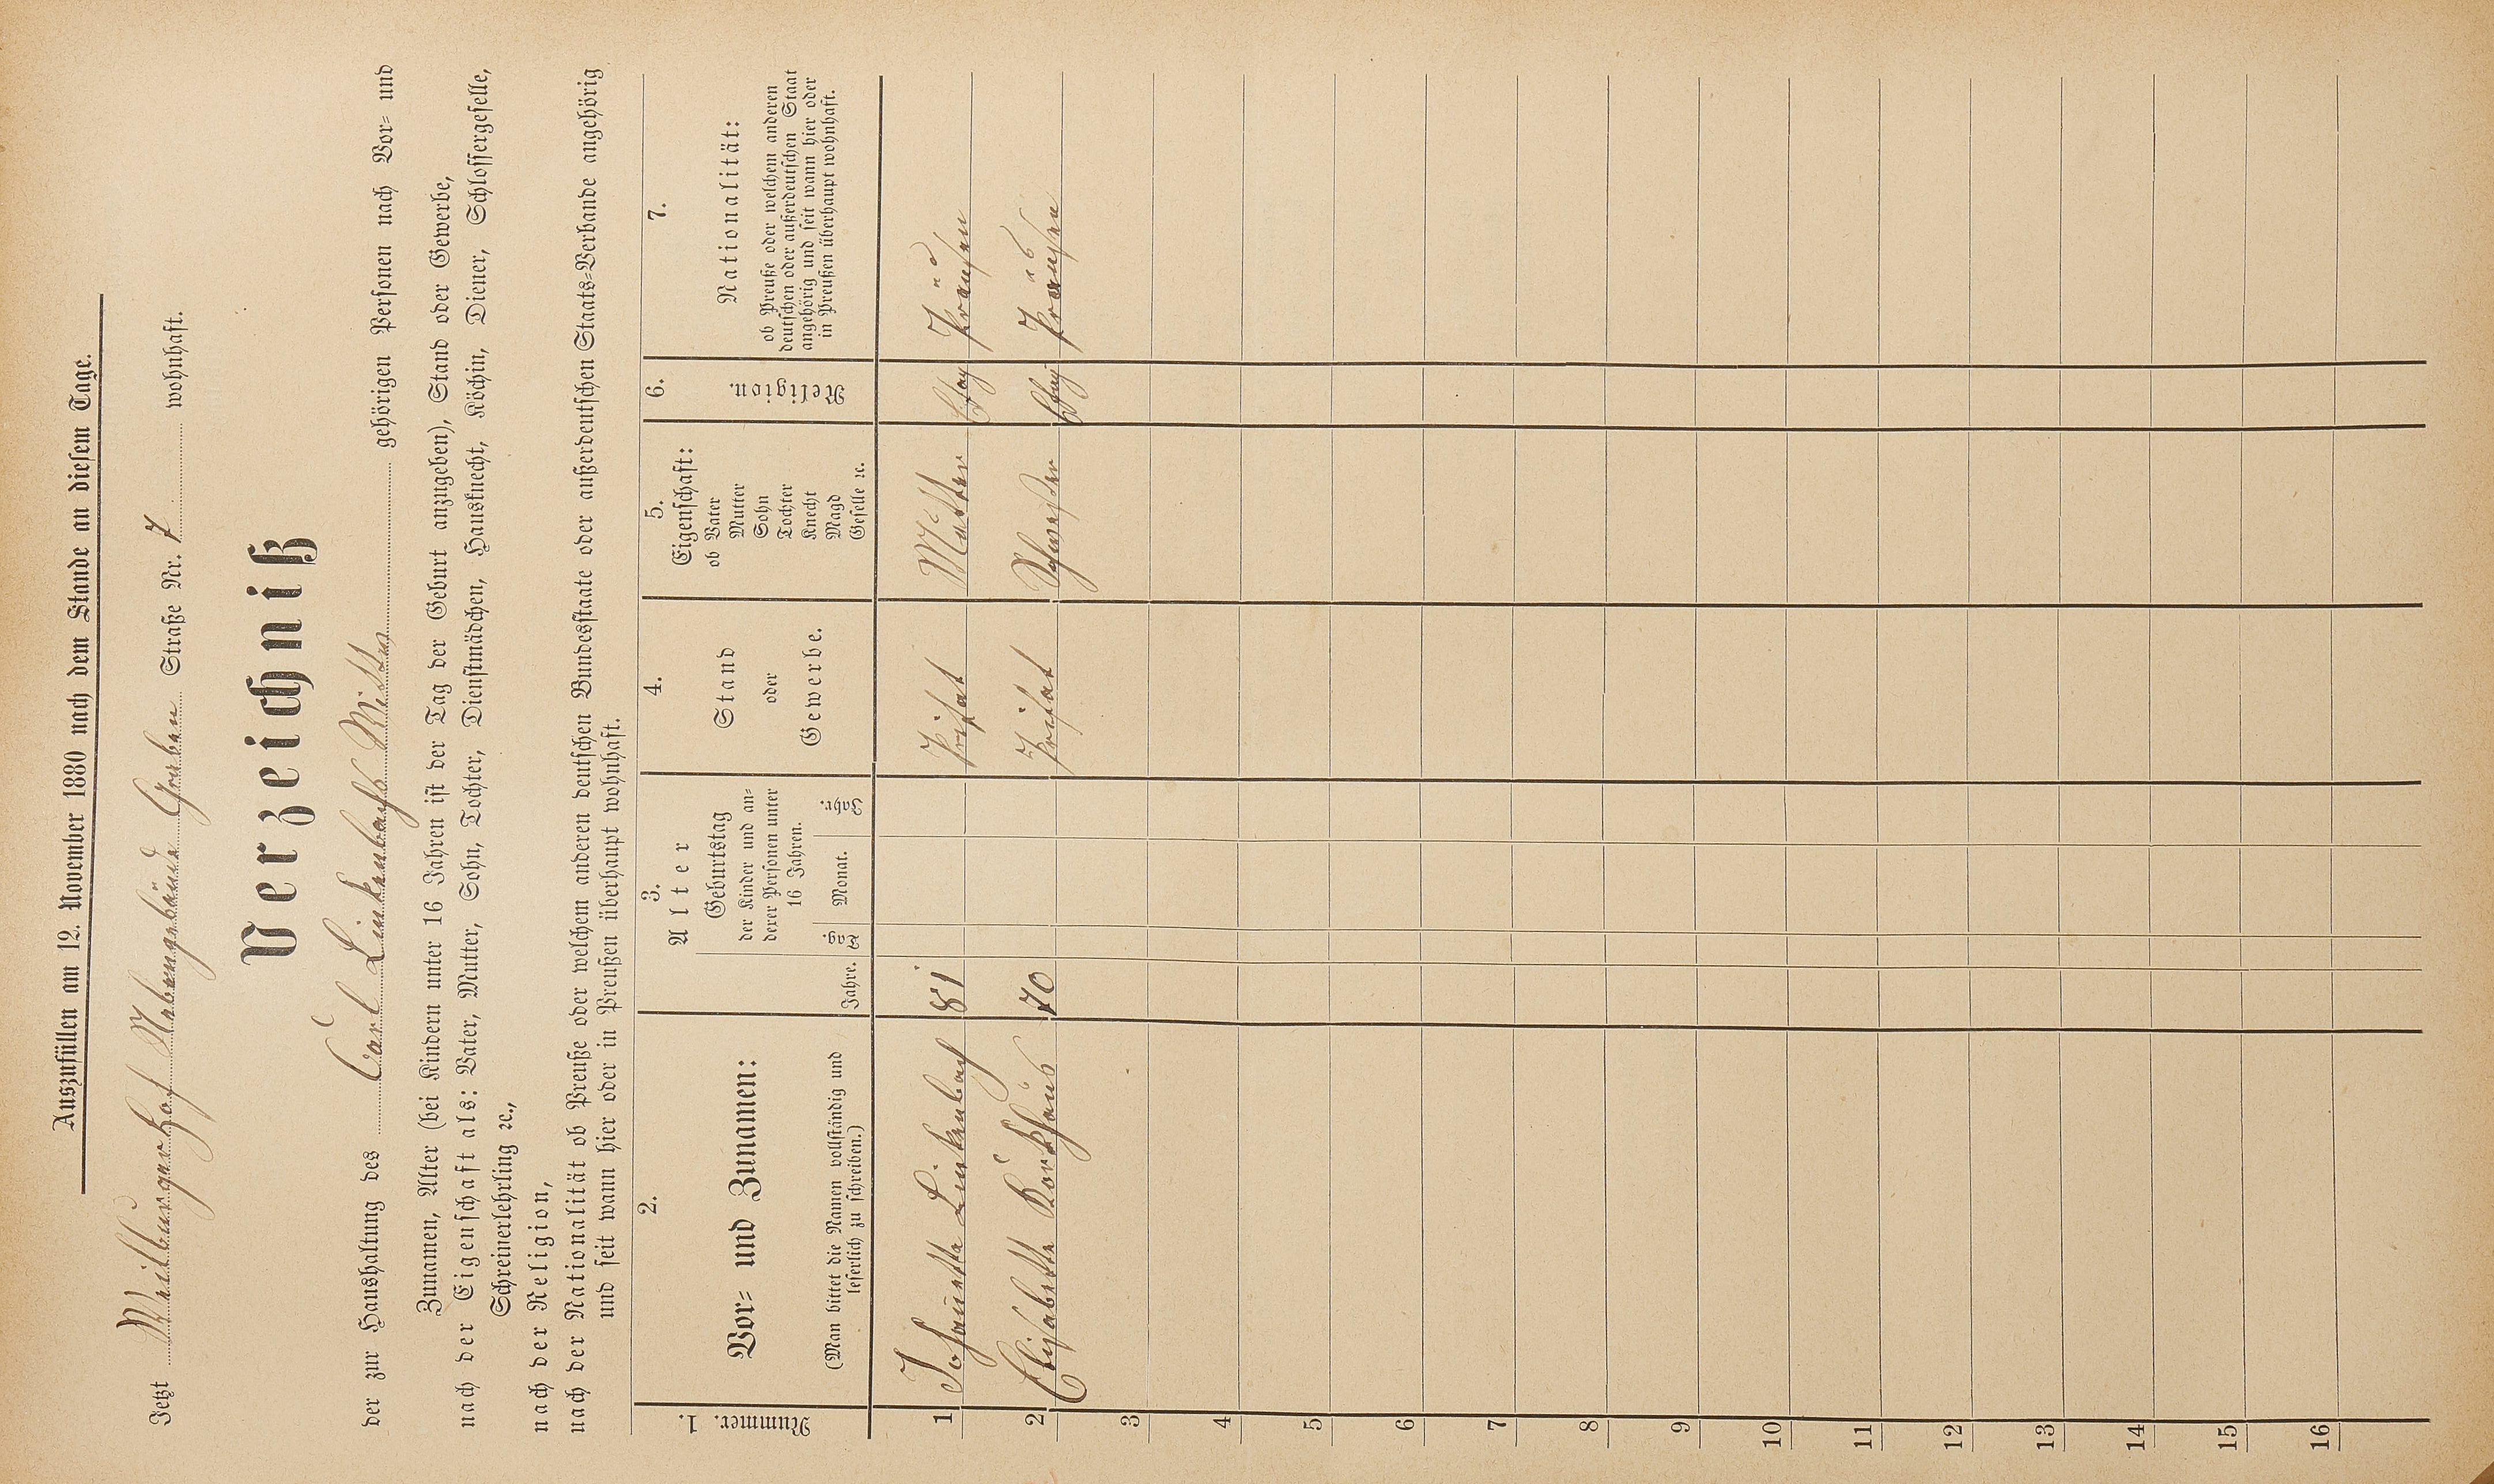 Auszufüllen am 12. November 1880 nach dem Stande an diesem Tage.
Jetzt Weilburgerhof Nebengebäude Graben Straße Nr. 7 wohnhaft.
Verzeichniß
der zur Haushaltung des Carl Linkenbachs gehörigen Personen nach Vor- und
Zunamen, Alter (bei Kindern unter 16 Jahren ist der Tag der Geburt anzugeben), Stand oder Gewerbe,
nach der Eigenschaft als: Vater, Mutter, Sohn, Tochter, Dienstmädchen, Hausknecht, Köchin, Diener, Schlossergeselle,
Schreinerlehrling ꝛc.,
nach der Religion,
nach der Nationalität ob Preuße oder welchem anderen deutschen Bundesstaate oder außerdeutschen Staats-Verbande angehörig
und seit wann hier oder in Preußen überhaupt wohnhaft.
1.
Nummer.
2.
Vor- und Zunamen:
(Man bittet die Namen vollständig und
leserlich zu schreiben.)
3.
Alter
Jahre.
Geburtstag
der Kinder und an-
derer Personen unter
16 Jahren.
Tag.
Monat.
Jahr.
4.
Stand
oder
Gewerbe.
5.
Eigenschaft:
ob Vater
Mutter
Sohn
Tochter
Knecht
Magd
Geselle ꝛc.
6.
Religion.
7.
Nationalität:
ob Preuße oder welchem anderen
deutschen oder außerdeutschen Staat
angehörig und seit wann hier oder
in Preußen überhaupt wohnhaft.
1 Johanette Linkenbach 81 Prifat Mutter
2 Elisabette Börkhaus 70 Prifat Schwester
3
4
5
6
7
8
9
10
11
12
13
14
15
16